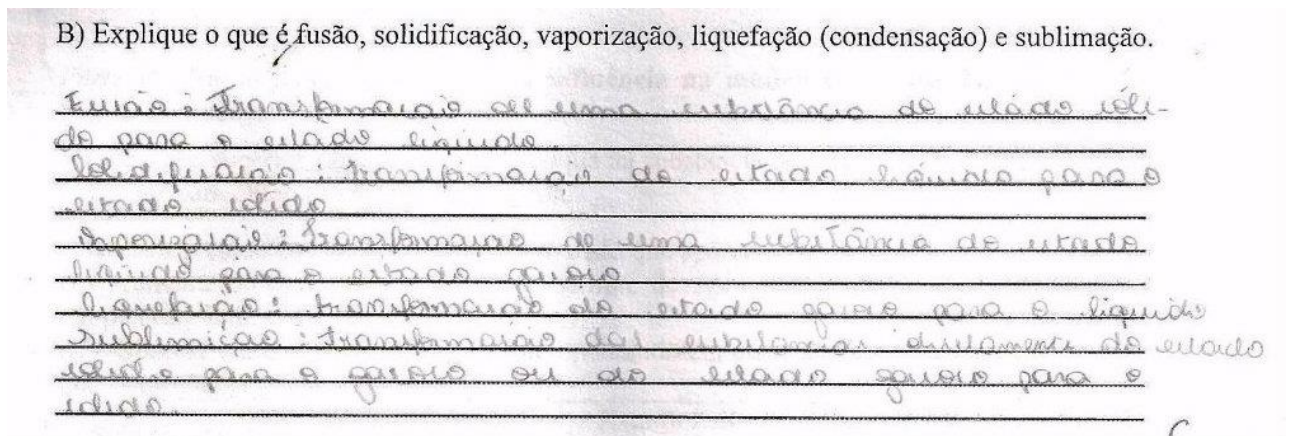 B) Explique o que é fusão, solidificação, vaporização, liquefação (condensação) e sublimação.
Fusão: Transformação de uma substância do estado sóli-
do para o estado líquido.
Solidificação: transformação do estado líquido para o
estado sólido
Vaporização: Transformação de uma substância do estado
líquido para o estado gasoso
liquefação: transformação do estado gasoso para o líquido
sublimição: transformação das substâncias diretamente do estado
sólido para o gasoso ou do estado gasoso para o
sólido.